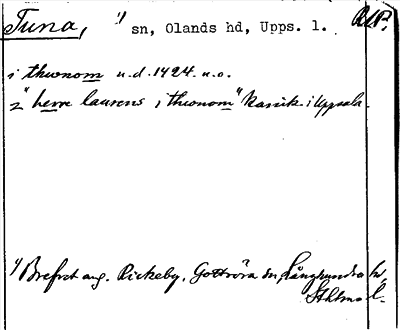 Tuna, 1) sn, Olands hd, Upps. l. RAP.
i thwnom u.d. 1424. u.o.
2 "herre laurens i thwnom" kanik i Uppsala.
1) Brefvet ang. Rickeby, Gottröra sn, Långhundra hd,
Sthlms l.